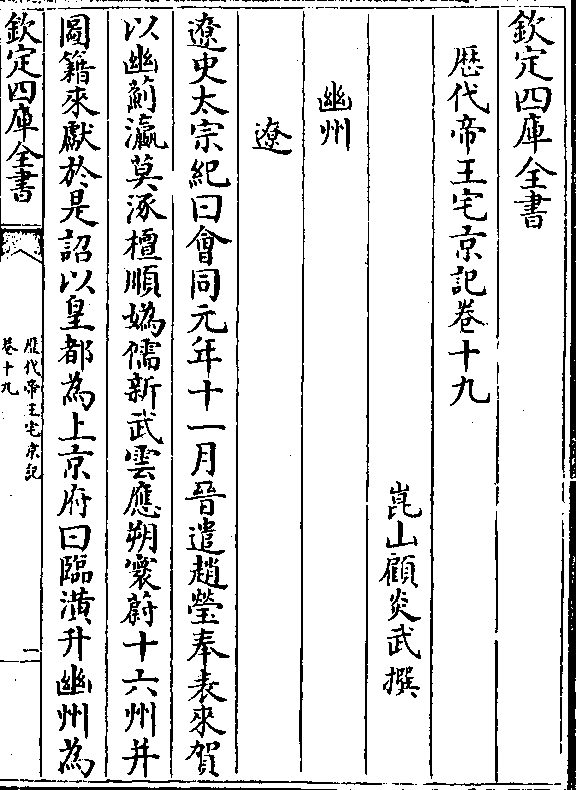 欽定四庫全書
歴代帝王宅京記卷十九
崑山顧炎武撰
幽州
遼
遼史太宗紀曰會同元年十一月晉遣趙瑩奉表來賀
以幽薊瀛莫涿檀順媯儒新武雲應朔寰蔚十六州并
圖籍來獻於是詔以皇都為上京府曰臨潢升幽州為
欽定四庫全書
歴代帝王宅京記
卷十九
一